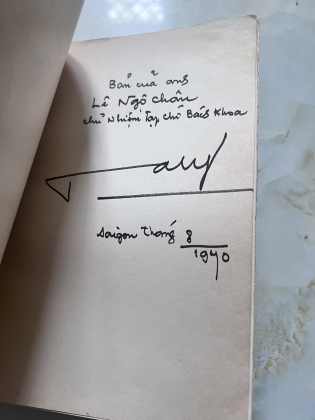 Bản của anh
Lê Ngộ Châu
chủ nhiệm tạp chí Bách Khoa
Saigon tháng 8
1970